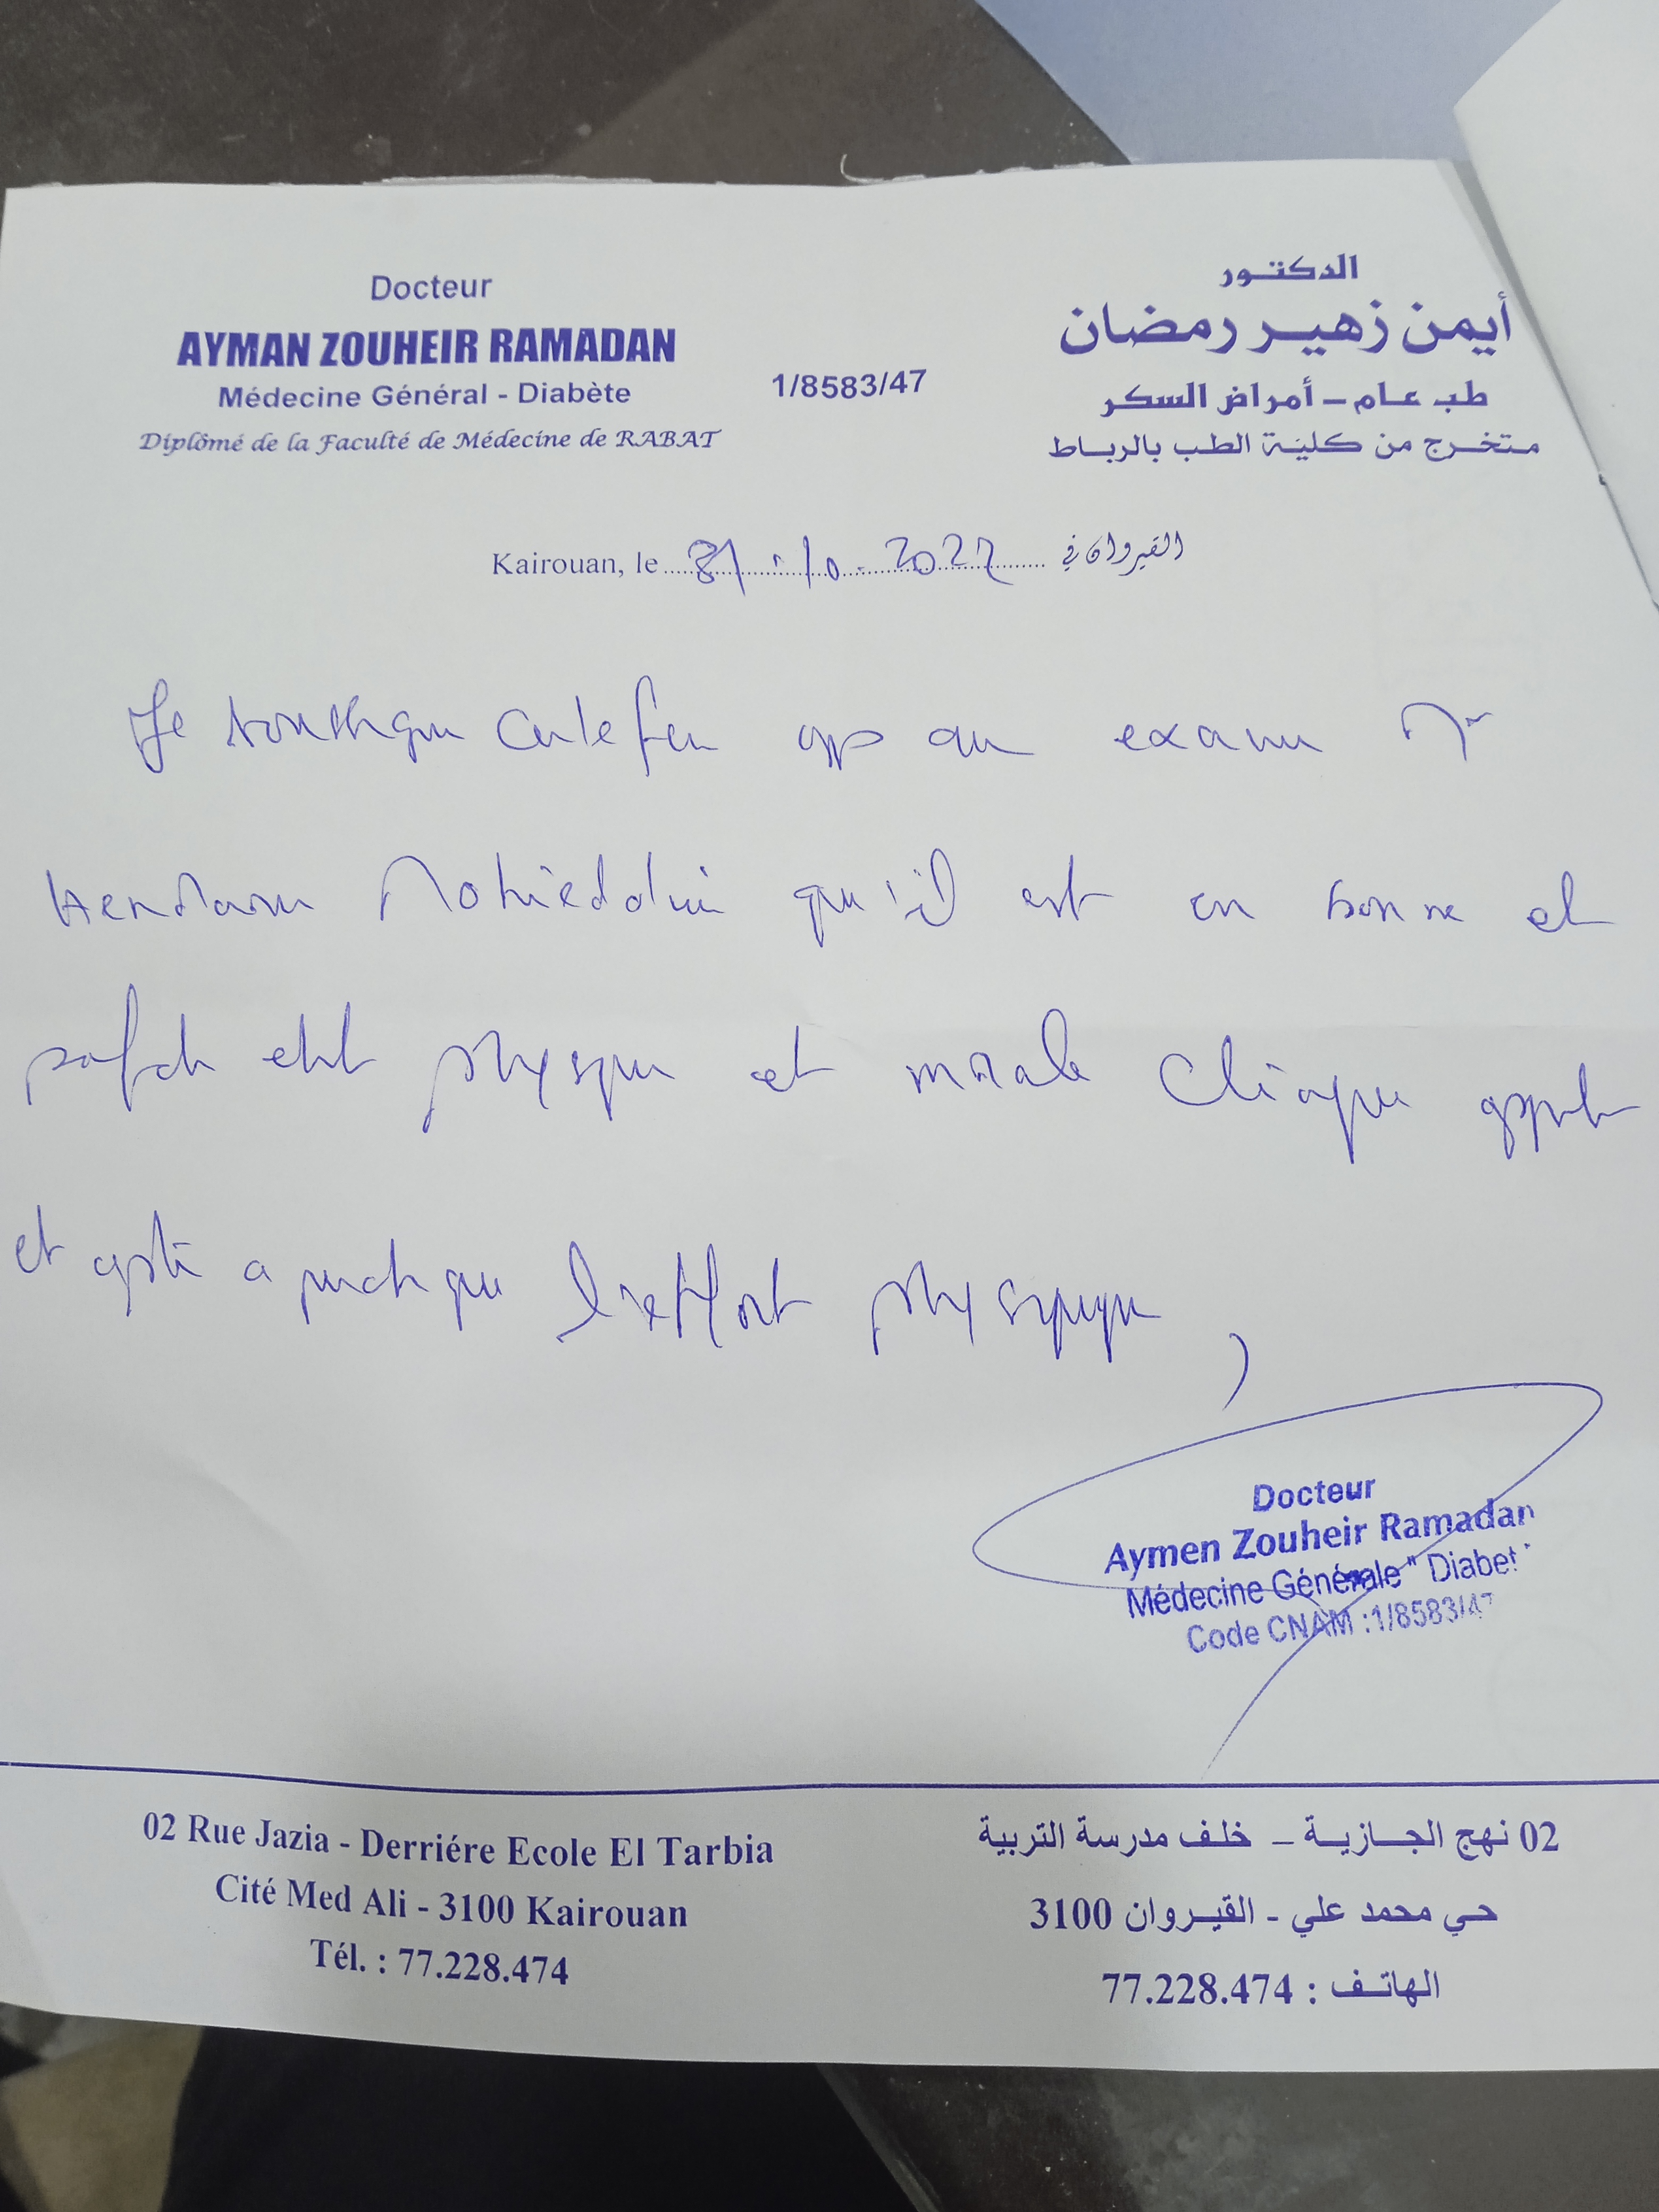 Docteur
AYMAN ZOUHEIR RAMADAN
Médecine Général - Diabète
Diplômé de la Faculté de Médecine de RABAT
1/8583/47
الدكتور
أيمن زهير رمضان
طب عام - أمراض السكر
متخرج من كلية الطب بالرباط
Kairouan, le 31.10.2022 القيروان في
Je au exam Mr
Mohieddin qu'il est en bonne et
physique et morale clinique
et a l'effort physique
Docteur
Aymen Zouheir Ramadan
Médecine Générale " Diabet
Code CNAM :1/8583/47
02 Rue Jazia - Derriére Ecole El Tarbia
Cité Med Ali - 3100 Kairouan
Tél. : 77.228.474
02 نهج الجازية - خلف مدرسة التربية
حي محمد علي - القيروان 3100
الهاتف : 77.228.474